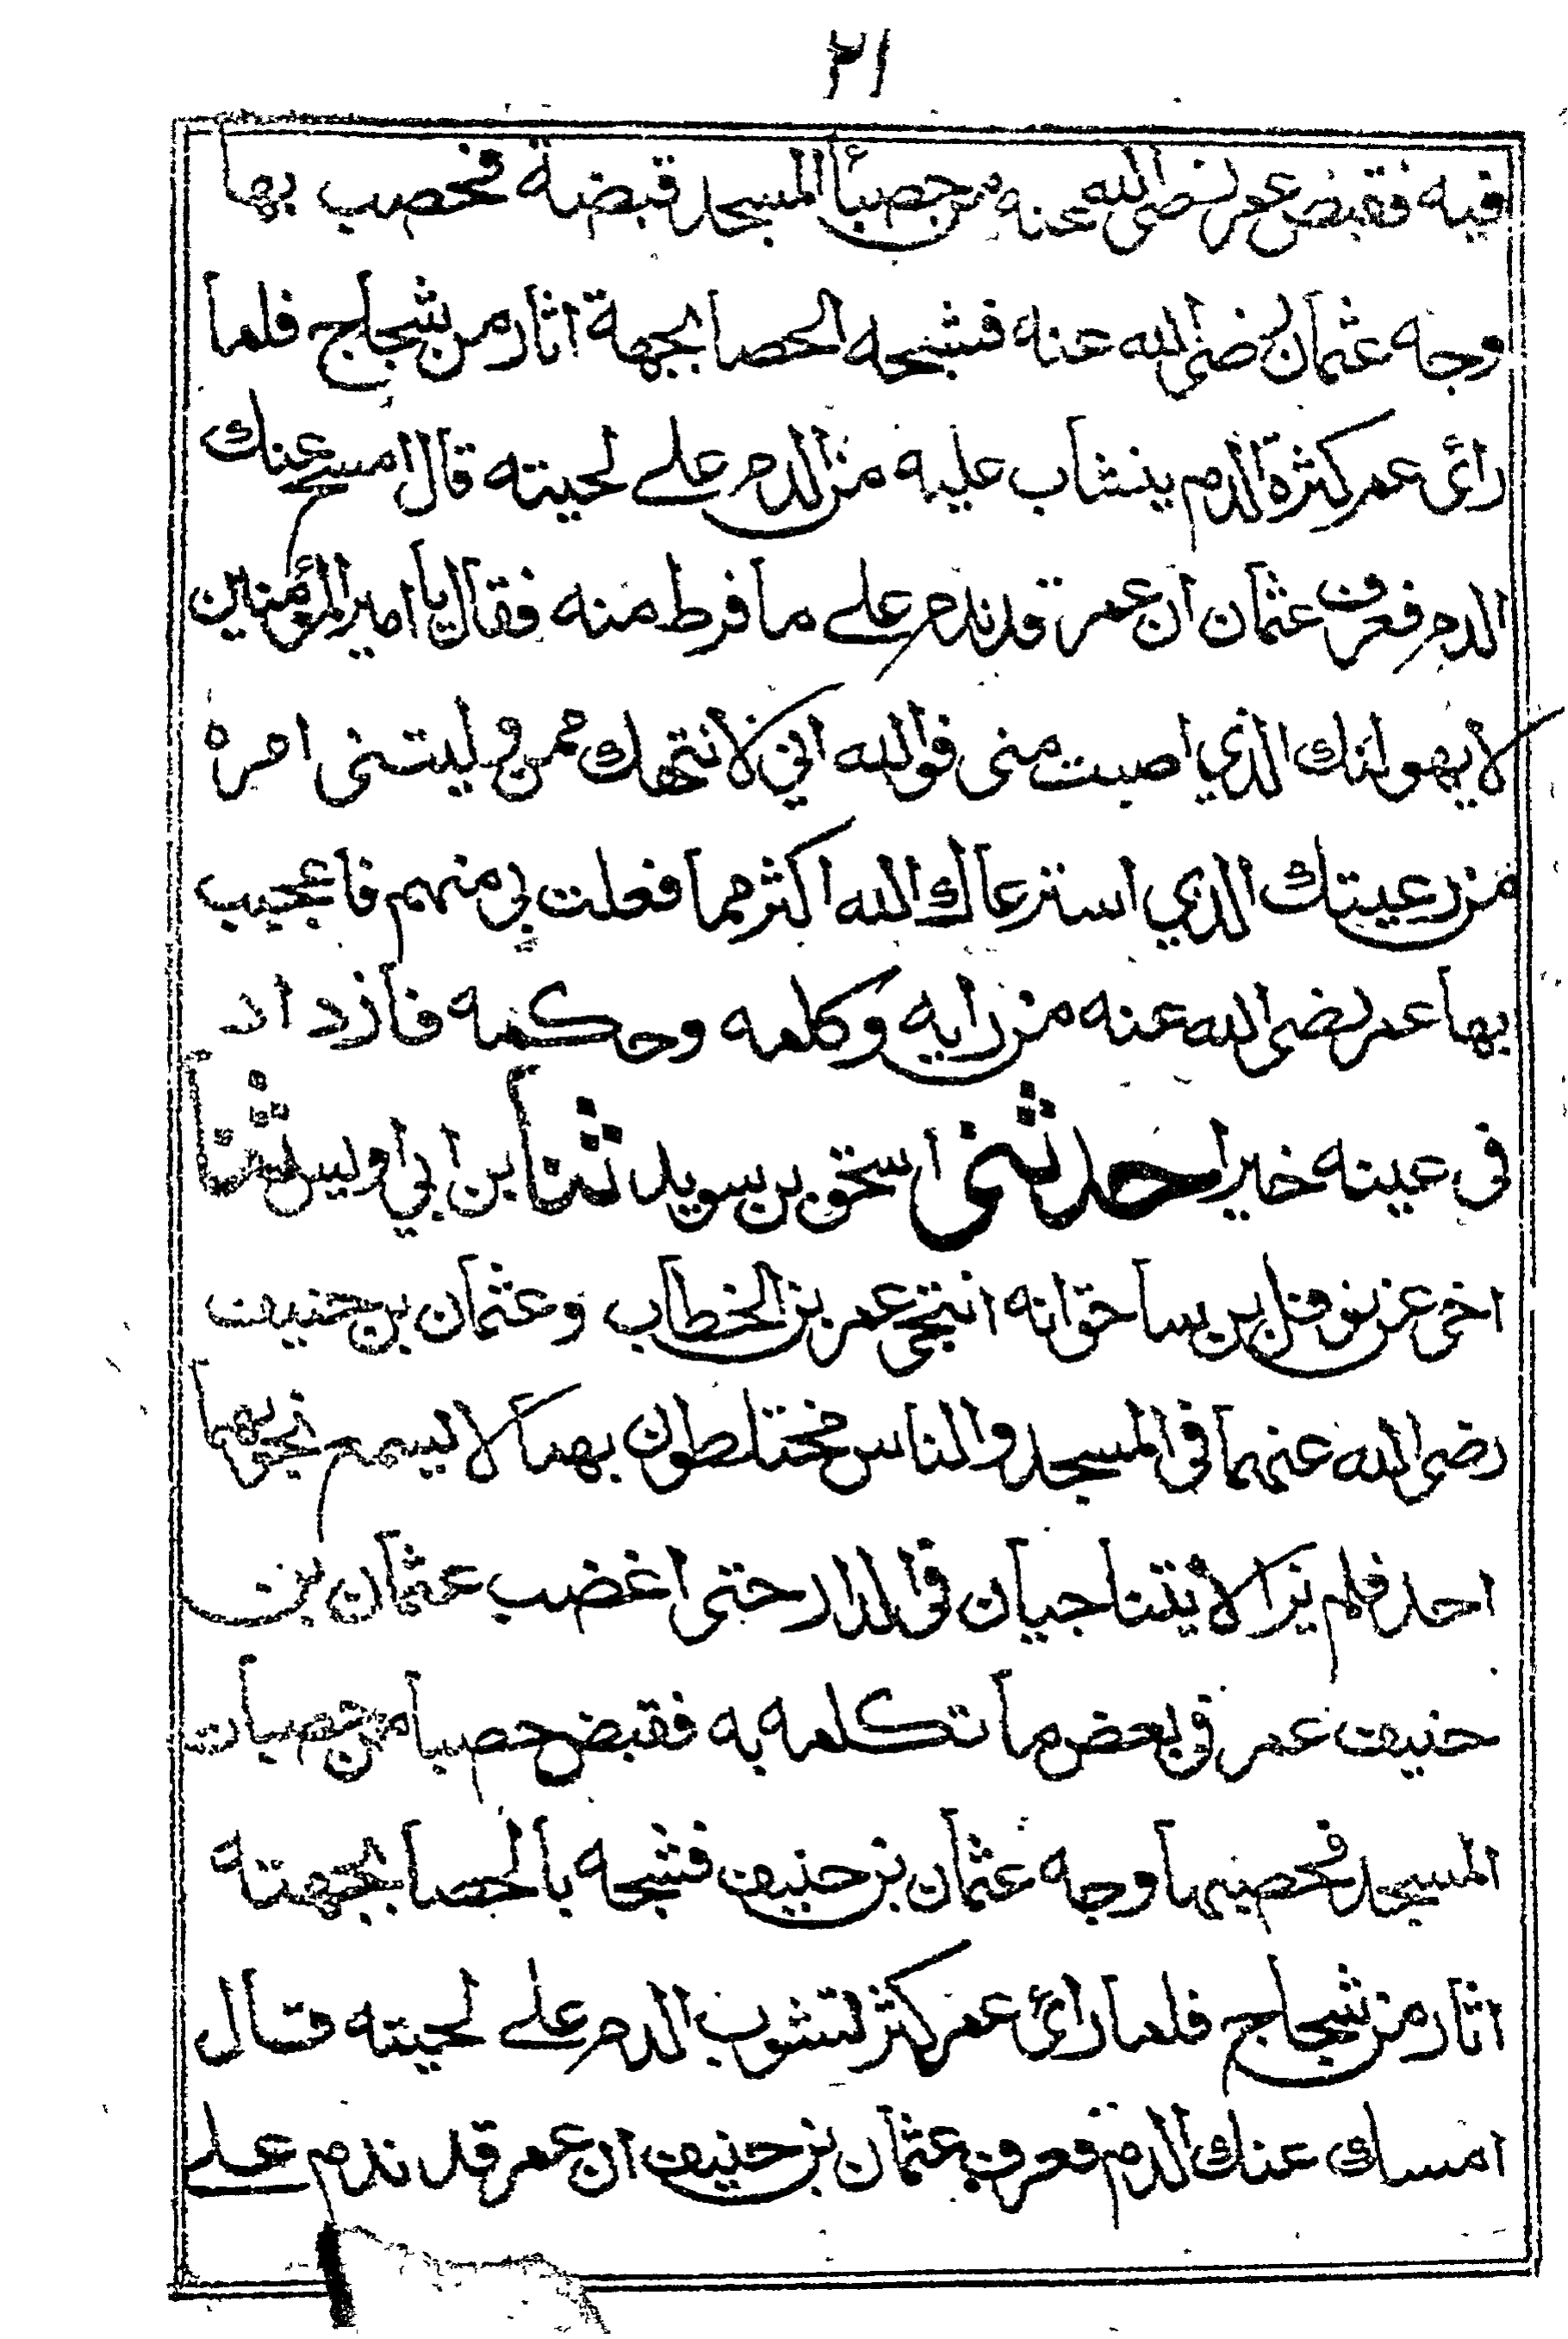 ٢١
فيه فقبض عمر رضى الله عنه من حصبأ المسجد قبضة فحصب بها
وجه عثمان رضى الله عنه فشجه الحصا بجبهة اثار من شجاج فلما
رائ عمر كثرة الدم ينشاب عليه من الدم على لحيته قال امسح عنك
الدم فعرف عثمان ان عمر قد ندم على ما فرط منه فقال يا امير المؤمنين
لا يهولنك الذي اصبت منى فوالله اني لانتهك ممن وليتنى امره
من رعيتك الذي استرعاك الله اكثر مما فعلت بي منهم فاعجب
بها عمر رضى الله عنه من رايه وكلمه وحكمه فازداد
فى عينه خيرا حدثنى اسحق بن سويد ثنا بن ابي اويس ثنا
اخى عن نوفل بن مساحق انه انتجى عمر بن الخطاب وعثمان بن حنيف
رضى الله عنهما فى المسجد والناس مختلطون بهما لا يسمع نجويهما
احد فلم يزالا يتناجيان فى الدار حتى اغضب عثمان بن
حنيف عمر فى بعض ما تكلمه به فقبض حصبا من حصبات
المسجد فحصب بها وجه عثمان بن حنيف فشجه بالحصا بجبهته
اثار من شجاج فلما رائ عمر كثر لتشوب الدم على لحيته قال
امسك عنك الدم فعرف عثمان بن حنيف ان عمر قد ندم على